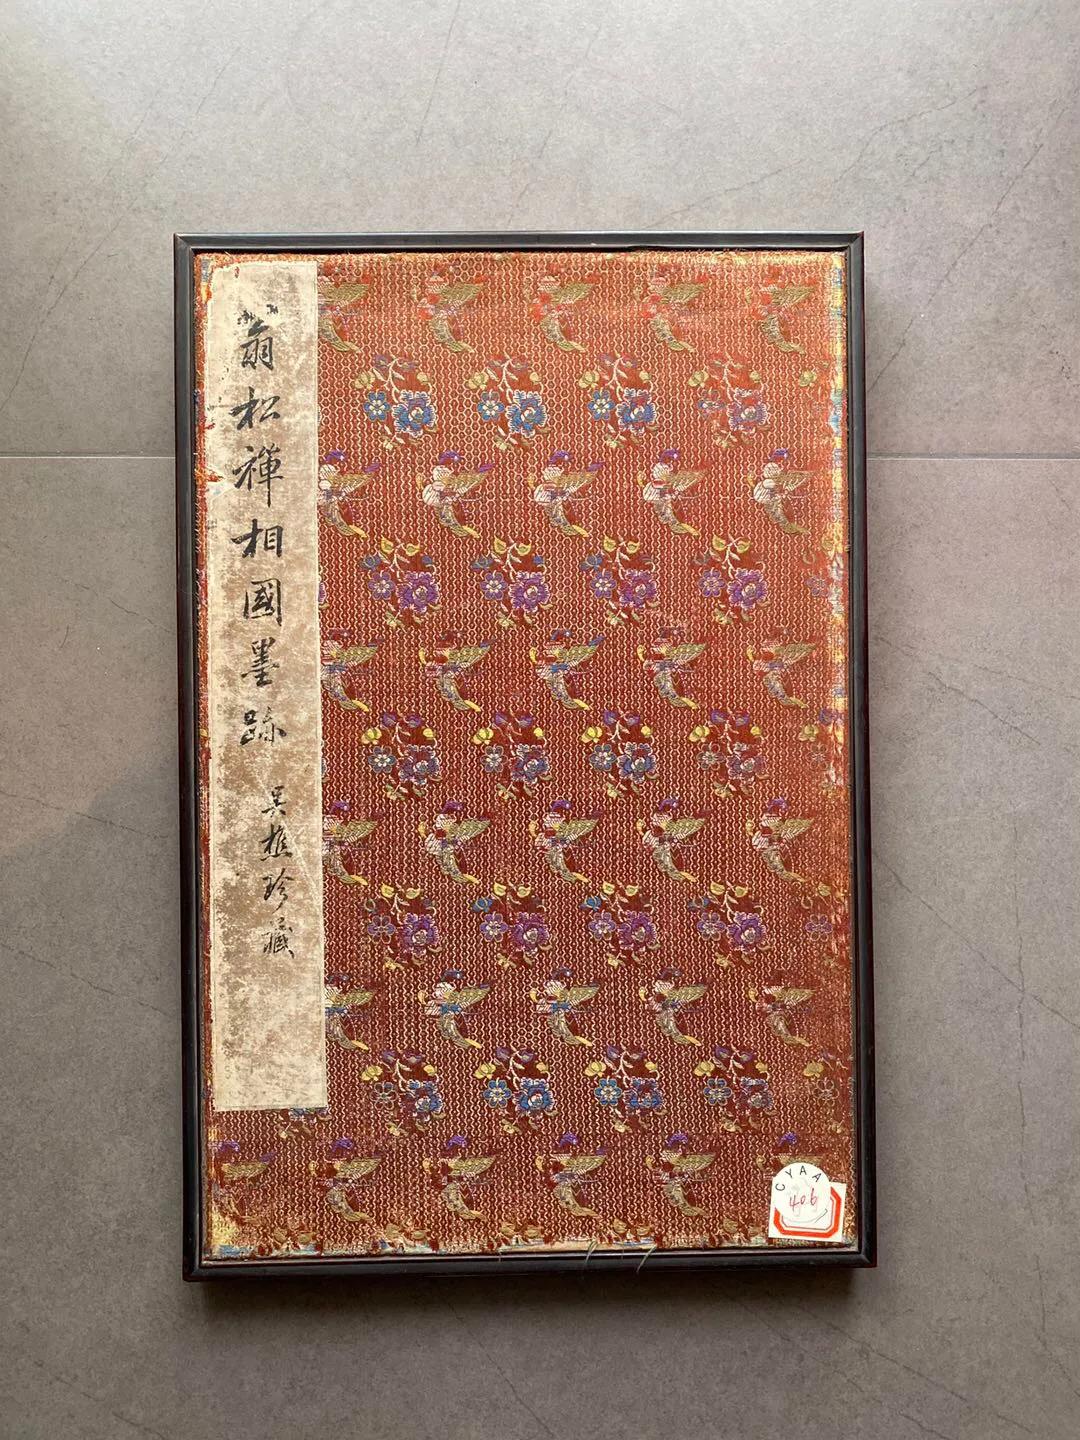 翁松禪相國墨跡
吴樵珍藏
CYAA
406